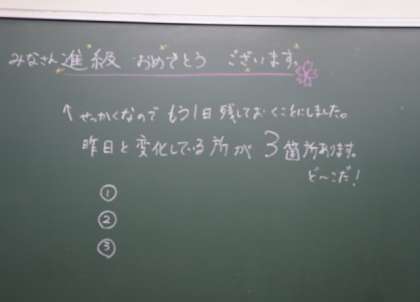 みなさん進級 おめでとう ございます。
↑せっかくなので もう1日 残しておくことにしました。
昨日と変化している所が 3箇所あります。
ど〜こだ！
①
②
③